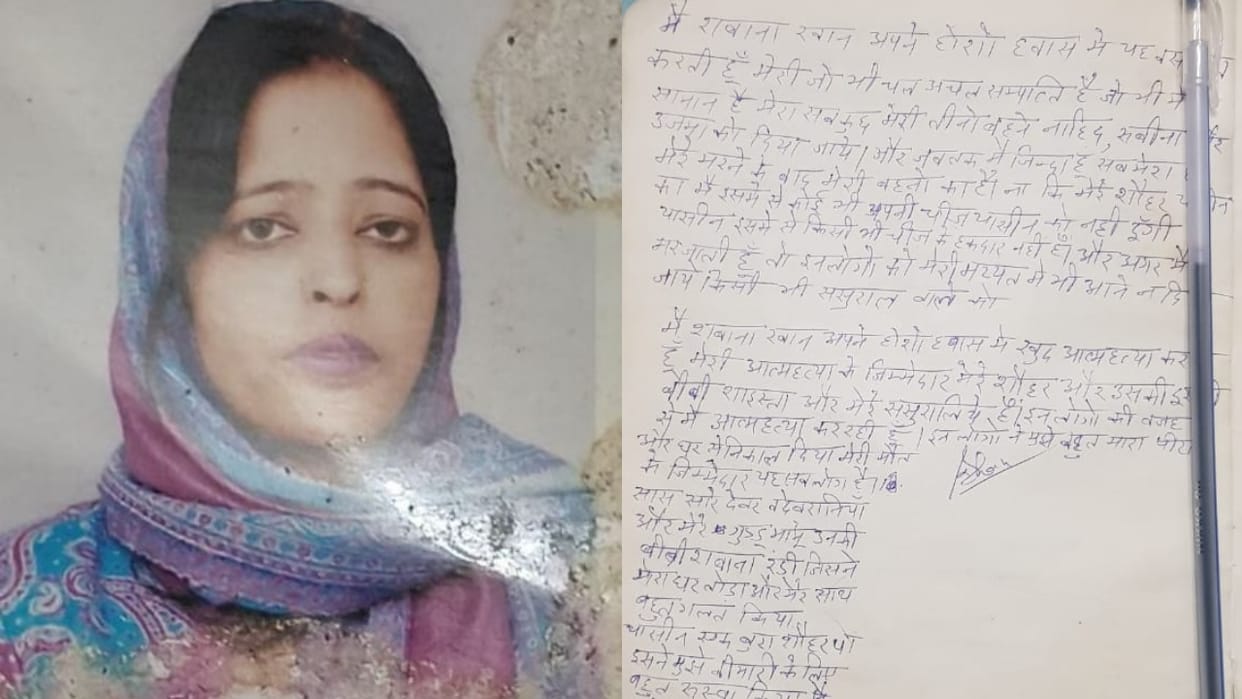 मै शबाना खान अपने होशो हवास मे यह
करती हूँ मेरी जो भी चल अचल सम्पत्ति है जो भी मे
सामान है मेरा सबकुछ मेरी तीनो बहने नाहिद, सबीना
को दिया जाये। और जबतक मै जिन्दा हूँ सब मेरा
मेरे मरने के बाद मेरी बहनो का है। ना कि मेरे शौहर
का मै इसमे से कोई भी अपनी चीज यासीन को नही दूँगी
यासीन इसमे से किसी भी चीज के हकदार नही है। और अगर मै
मरजाती हूँ तो इनलोगो को मेरी मय्यत मे भी आने न दि
जाये किसी भी ससुराल वाले को
मै शबाना खान अपने होशो हवास मे खुद आत्महत्या कर
हूँ मेरी आत्महत्या के जिम्मेदार मेरे शौहर और उसकी
बीबी शाइस्ता और मेरे ससुरालिये है। इन लोगो की वजह
से मै आत्महत्या कर रही हूँ। इन लोगो ने मुझे बहुत मारा पीटा
और घर से निकाल दिया मेरी मौत
के जिम्मेदार यह सब लोग है।
सास सारे देवर व देवरानिया
और मेरे गुड्डू मामू उनकी
बीबी शबाना रंडी जिसने
मेरा घर तोडा और मेरे साथ
बहुत गलत किया।
यासीन एक बुरा शौहर था
इसने मुझे बीमारी के लिए
बहुत रुसवा किया